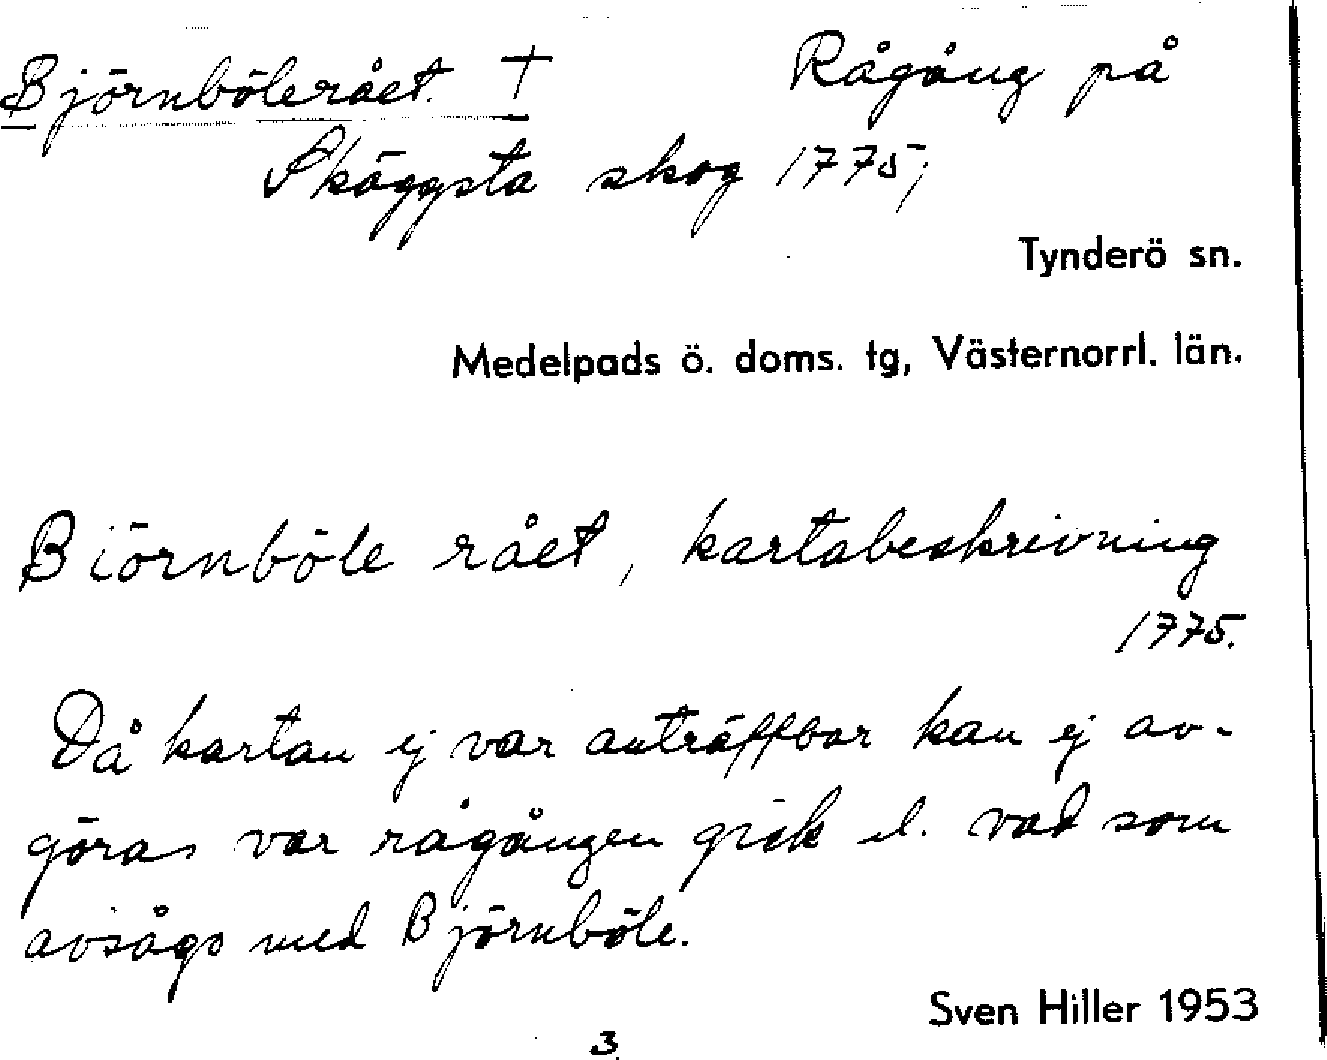 Björnbölerået. † Rågång på
Skäggsta skog 1775;
Tynderö sn.
Medelpads ö. doms. tg, Västernorrl. län.
Biörnböle rået, kartabeskrivning
1775.
Då kartan ej var anträffbar kan ej av-
göras var rågången gick el. vad som
avsågs med Björnböle.
Sven Hiller 1953
3.